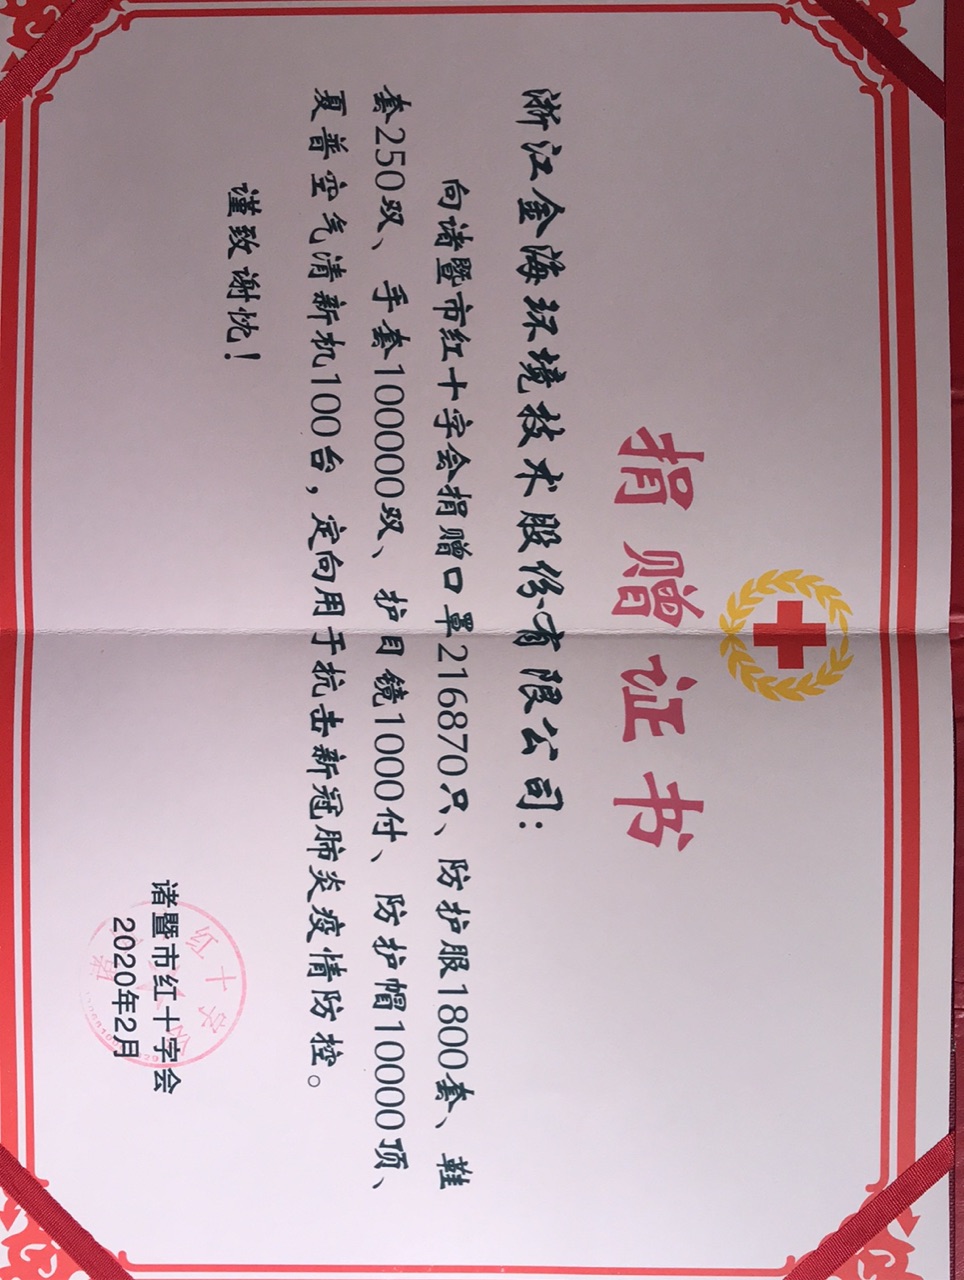 捐赠证书
浙江金海环境技术股份有限公司：
向诸暨市红十字会捐赠口罩216870只、防护服1800套、鞋
套250双、手套100000双、护目镜1000付、防护帽10000顶、
夏普空气清新机100台，定向用于抗击新冠肺炎疫情防控。
谨致谢忱！
诸暨市红十字会
2020年2月